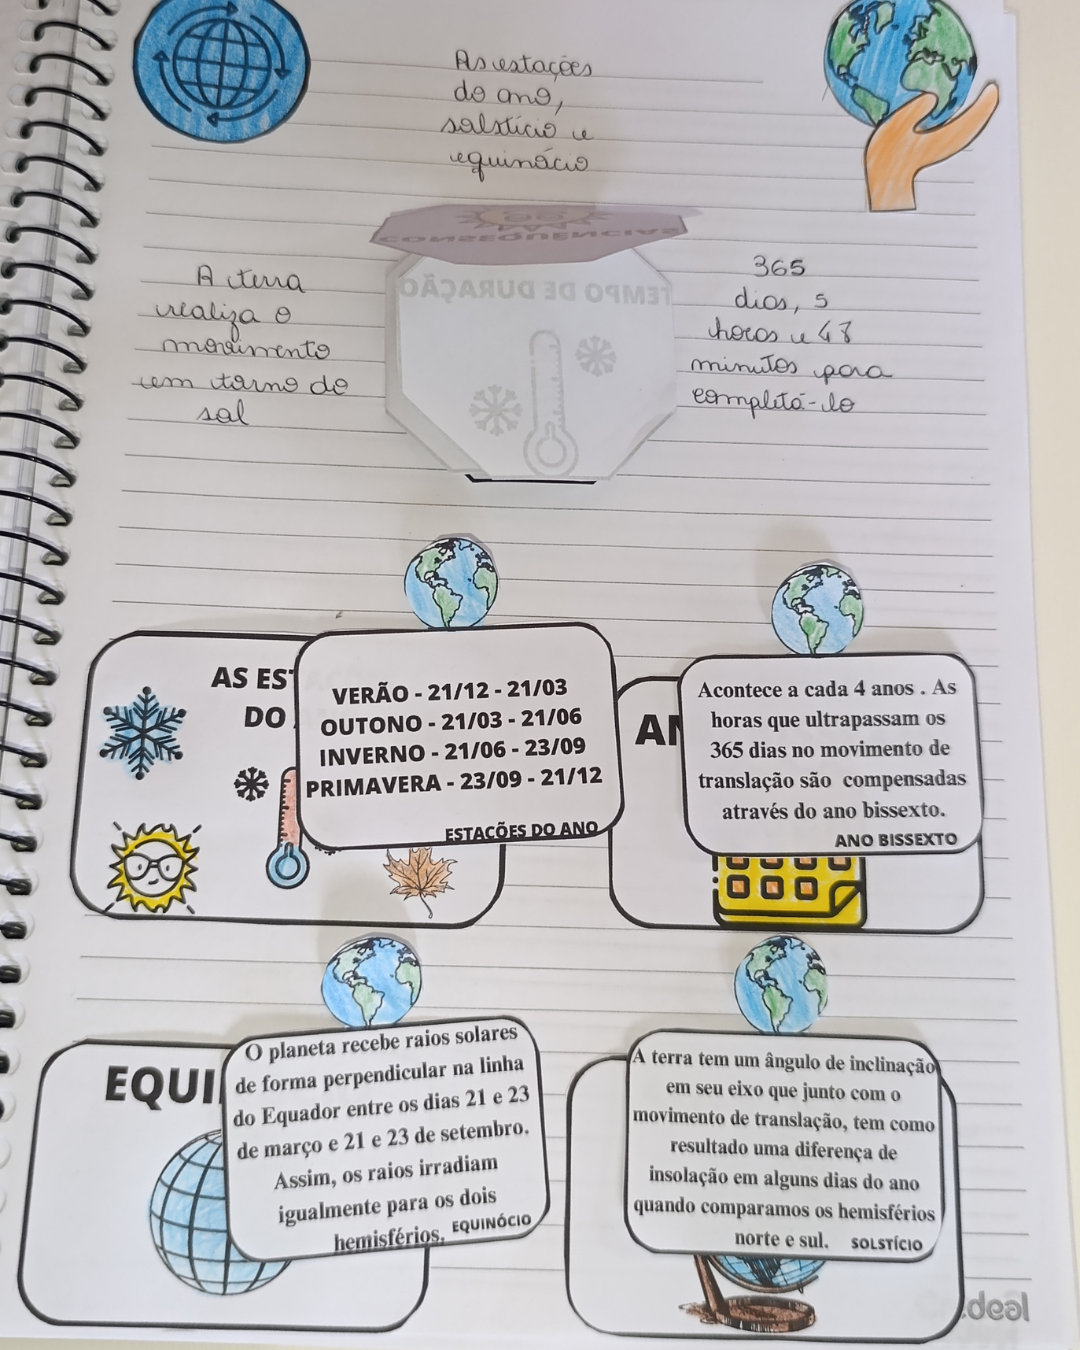 As estações
do ano,
solstício e
equinócio
CONSEQUÊNCIAS
TEMPO DE DURAÇÃO
A terra
realiza o
movimento
em torno do
sol
365
dias, 5
horas e 48
minutos para
completá-lo
AS EST
DO
VERÃO - 21/12 - 21/03
OUTONO - 21/03 - 21/06
INVERNO - 21/06 - 23/09
PRIMAVERA - 23/09 - 21/12
ESTAÇÕES DO ANO
AN
Acontece a cada 4 anos . As
horas que ultrapassam os
365 dias no movimento de
translação são compensadas
através do ano bissexto.
ANO BISSEXTO
EQUI
O planeta recebe raios solares
de forma perpendicular na linha
do Equador entre os dias 21 e 23
de março e 21 e 23 de setembro.
Assim, os raios irradiam
igualmente para os dois
hemisférios. EQUINÓCIO
A terra tem um ângulo de inclinação
em seu eixo que junto com o
movimento de translação, tem como
resultado uma diferença de
insolação em alguns dias do ano
quando comparamos os hemisférios
norte e sul. SOLSTÍCIO
deal